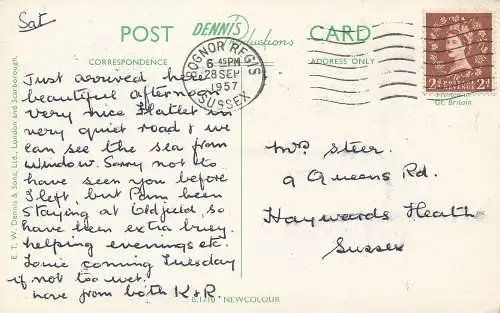 Sat
POST
DENNIS
Productions
CARD
CORRESPONDENCE
ADDRESS ONLY
BOGNOR REGIS
6 45PM
28 SEP
1957
SUSSEX
Gt. Britain
E. T. W. Dennis & Sons, Ltd., London and Scarborough.
Just arrived here
beautiful afternoon
very nice flatlet in
very quiet road & we
can see the sea from
window. Sorry not to
have seen you before
I left, but Pam been
staying at Oldfield, so
have been extra busy
helping evenings etc.
Louie coming Tuesday
if not too wet.
Love from both K & R.
Mrs Steer
9 Queens Rd.
Haywards Heath
Sussex
NEWCOLOUR